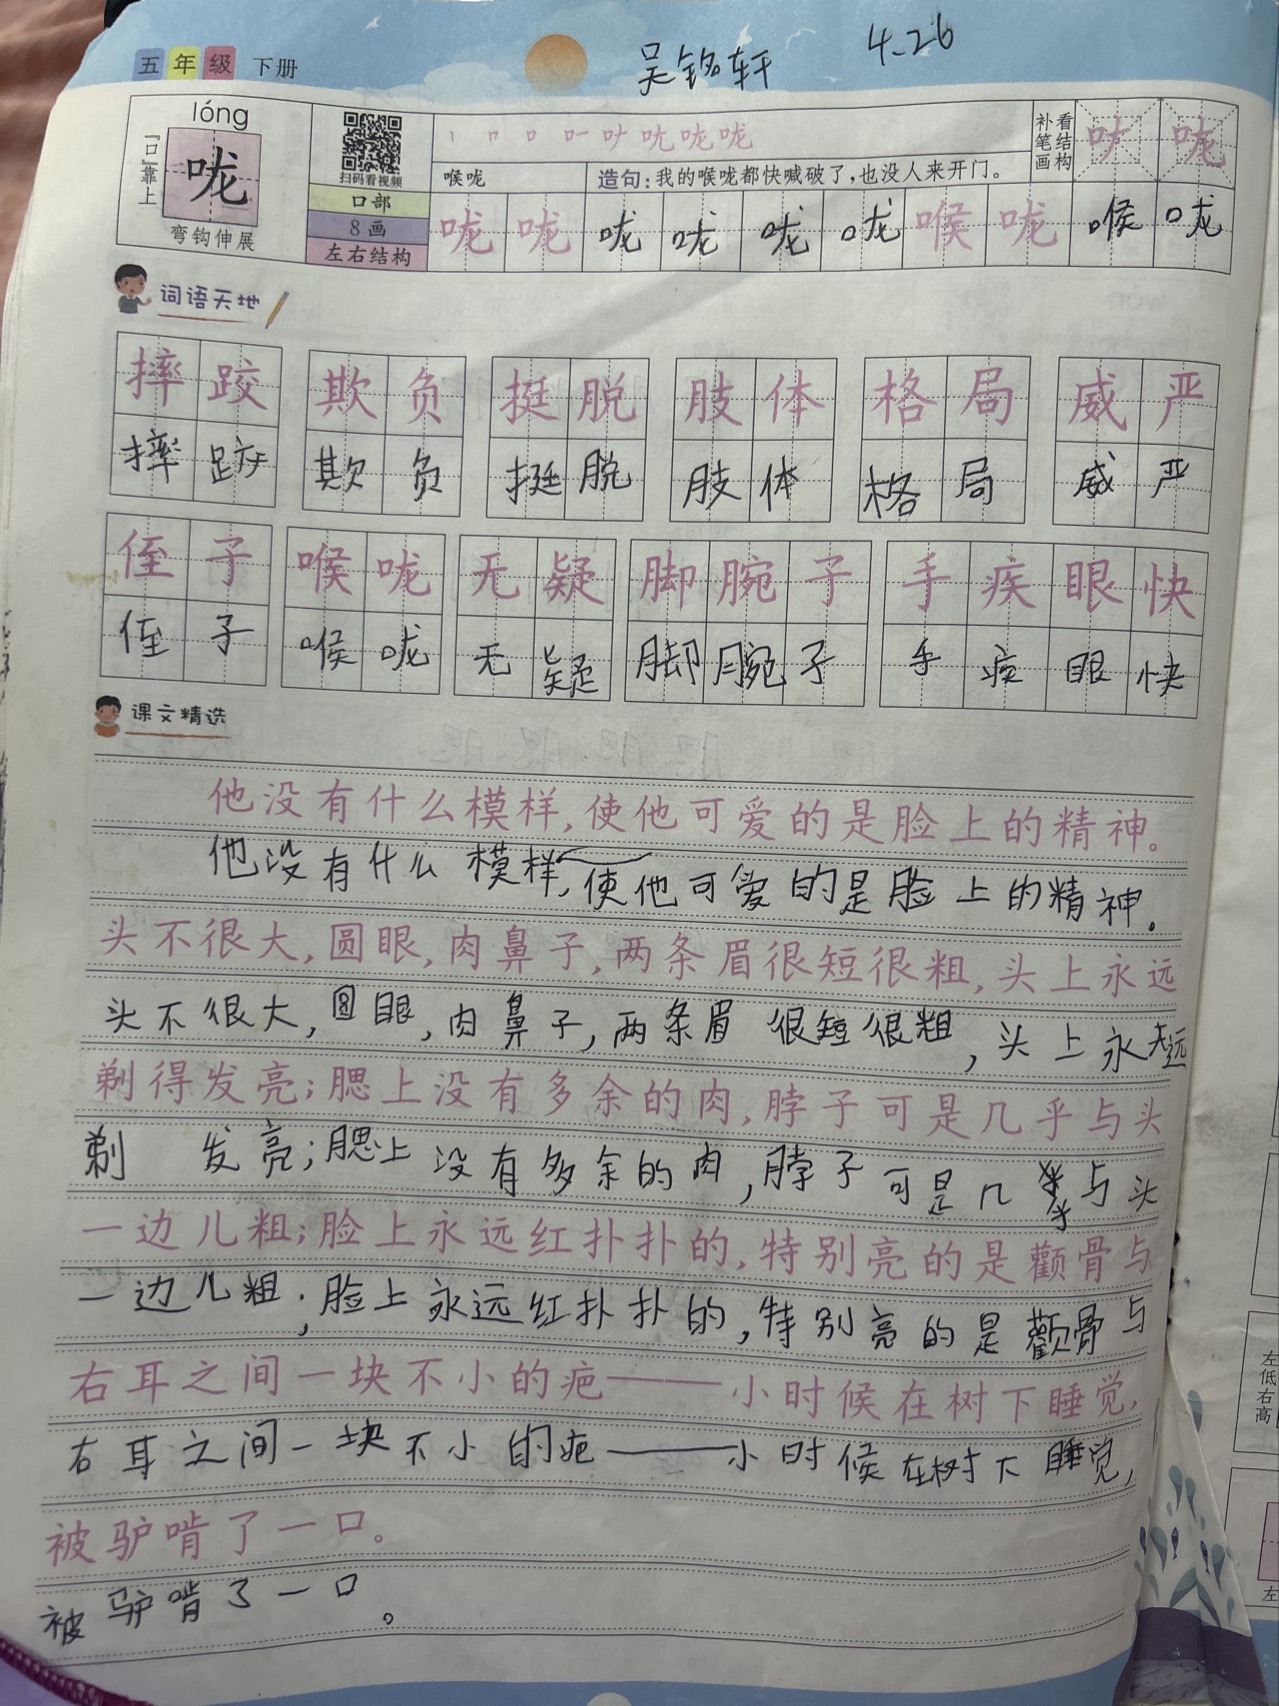 五年级 下册 吴铭轩 4-26
lóng
“口”靠上
咙
弯钩伸展
扫码看视频
口部
8画
左右结构
喉咙
造句：我的喉咙都快喊破了，也没人来开门。
看结构
补笔画
咙
咙 咙 咙 咙 咙 咙 喉 咙 喉 咙
词语天地
摔跤 欺负 挺脱 肢体 格局 威严
摔跤 欺负 挺脱 肢体 格局 威严
侄子 喉咙 无疑 脚腕子 手疾眼快
侄子 喉咙 无疑 脚腕子 手疾眼快
课文精选
他没有什么模样，使他可爱的是脸上的精神。
他没有什么模样，使他可爱的是脸上的精神。
头不很大，圆眼，肉鼻子，两条眉很短很粗，头上永远
头不很大，圆眼，肉鼻子，两条眉很短很粗，头上永远
剃得发亮；腮上没有多余的肉，脖子可是几乎与头
剃 发亮；腮上没有多余的肉，脖子可是几乎与头
一边儿粗；脸上永远红扑扑的，特别亮的是颧骨与
一边儿粗；脸上永远红扑扑的，特别亮的是颧骨与
右耳之间一块不小的疤——小时候在树下睡觉，
右耳之间一块不小的疤——小时候在树下睡觉，
被驴啃了一口。
被驴啃了一口。
左低右高
左